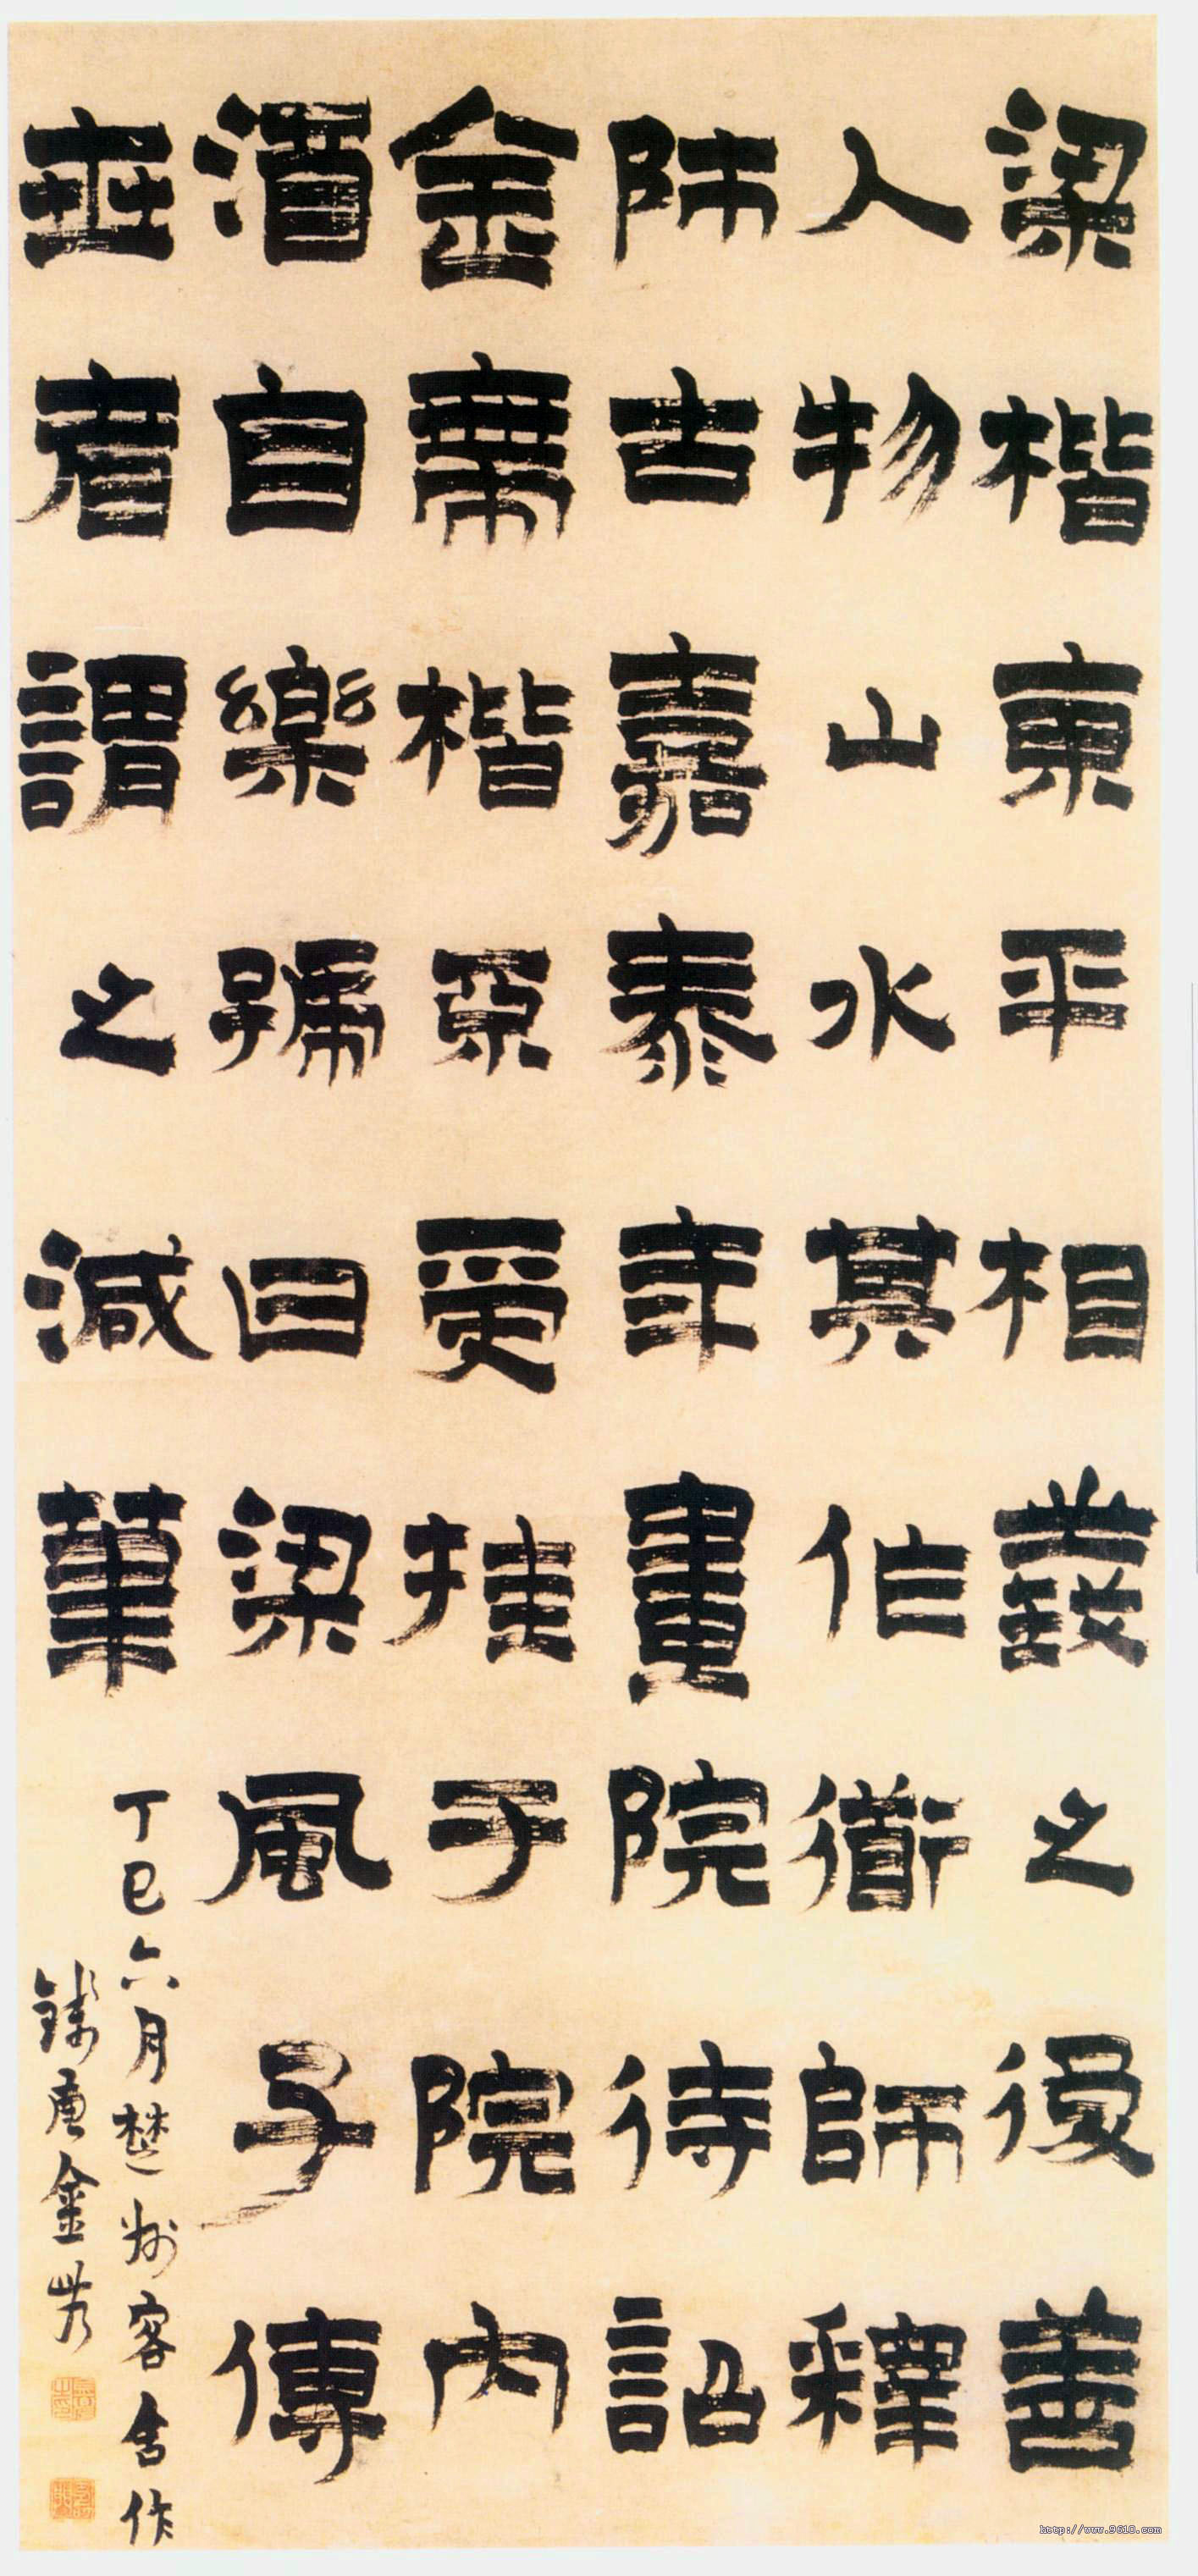 梁楷東平相義之後善
人物山水其作衜師釋
帥古嘉泰年畫院待詔
金帶楷不受挂于院内
酒自樂號曰梁風子傳
世者謂之減筆
丁巳六月楚州客舍作
錢唐金農
http://www.9610.com